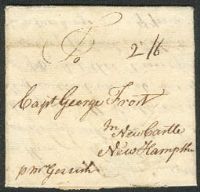 To 2/6
Capt George Frost
In New Castle
New Hampshr
pr Mr Gerrish